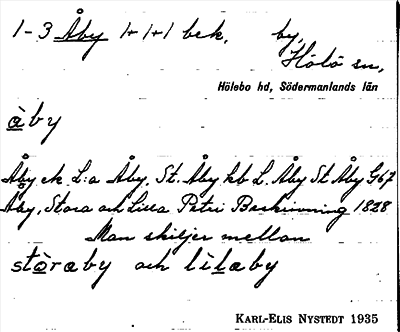 1-3 Åby 1+1+1 bek. by,
Hölö sn,
Hölebo hd, Södermanlands län
åby
Åby ek L:a Åby, St. Åby kb L. Åby St Åby G67
Åby, Stora och Lilla Petri Beskrivning 1828
Man skiljer mellan
stòraby och lìlaby
KARL-ELIS NYSTEDT 1935